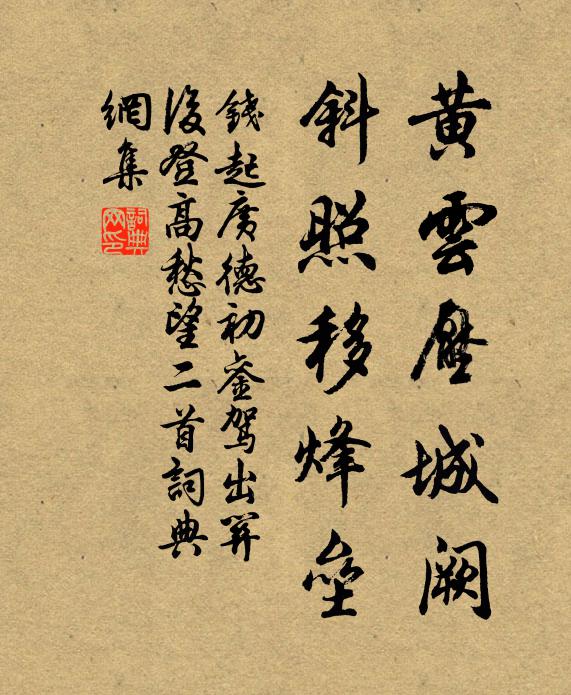 黃雲壓城闕
斜照移烽垒
錢起廣德初銮駕出關
後登高愁望二首詞典
網集
詞典
网印